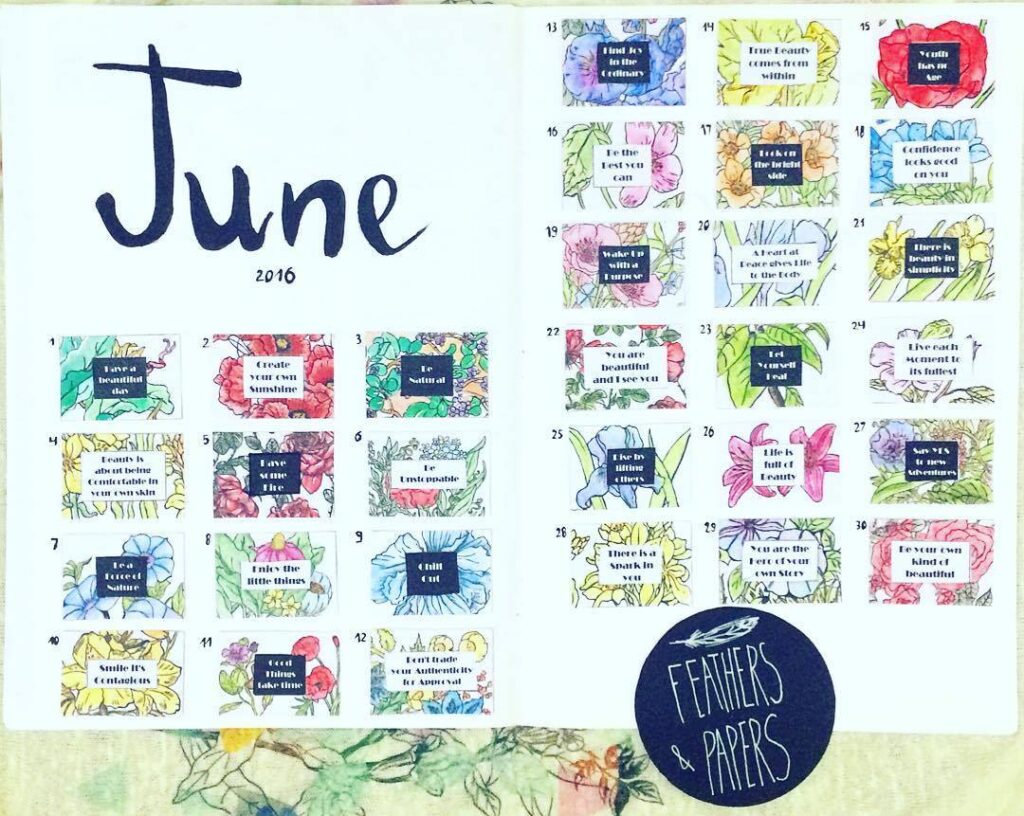 June
2016
1
Have a
beautiful
day
2
Create
your own
Sunshine
3
Be
Natural
4
Beauty is
about being
Comfortable in
your own skin
5
Have
some
Fire
6
Be
Unstoppable
7
Be a
Force of
Nature
8
Enjoy the
little things
9
Chill
Out
10
Smile It's
Contagious
11
Good
Things
take time
12
Don't trade
your Authenticity
for Approval
13
Find Joy
in the
Ordinary
14
True Beauty
comes from
within
15
Youth
has no
Age
16
Be the
Best you
can
17
Look on
the bright
side
18
Confidence
looks good
on you
19
Wake Up
with a
Purpose
20
A Heart at
Peace gives Life
to the Body
21
There is
beauty in
simplicity
22
You are
beautiful
and I see you
23
Let
Yourself
Heal
24
Live each
Moment to
its fullest
25
Rise by
lifting
others
26
Life is
full of
Beauty
27
Say YES
to new
Adventures
28
There is a
Spark in
you
29
You are the
Hero of your
own Story
30
Be your own
kind of
beautiful
FEATHERS
& PAPERS